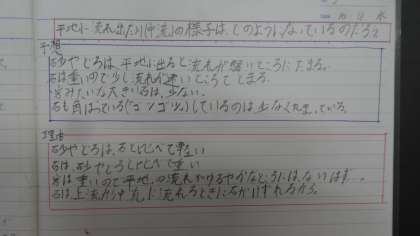 平地に流れ出た川(中流)の様子は、どのようになっているのだろう
予想
砂やどろは、平地に出ると流れが緩いところにたまる。
石は重いので少し流れが速いところでとまる。
岩みたいな大きいるは、少ない。
石も角ばっている(ゴツゴツ)しているのは少なくなっている。
理由
砂やどろは、石と比べて軽い
石は、砂やどろと比べて重い
岩は重いので平地の流れがゆるやかなところにはないはず。
石は上流から中流に流れるときに石がけずれるから。